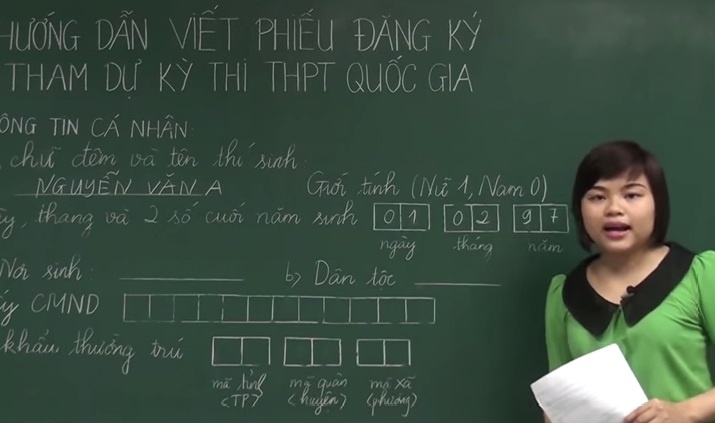 HƯỚNG DẪN VIẾT PHIẾU ĐĂNG KÝ
THAM DỰ KỲ THI THPT QUỐC GIA
ÔNG TIN CÁ NHÂN:
chữ đệm và tên thí sinh:
NGUYỄN VĂN A Giới tính (Nữ 1, Nam 0)
y, tháng và 2 số cuối năm sinh 0 1 0 2 9 7
ngày tháng năm
Nơi sinh: b) Dân tộc
ấy CMND
khẩu thường trú
mã tỉnh mã quận mã xã
(TP) (huyện) (phường)